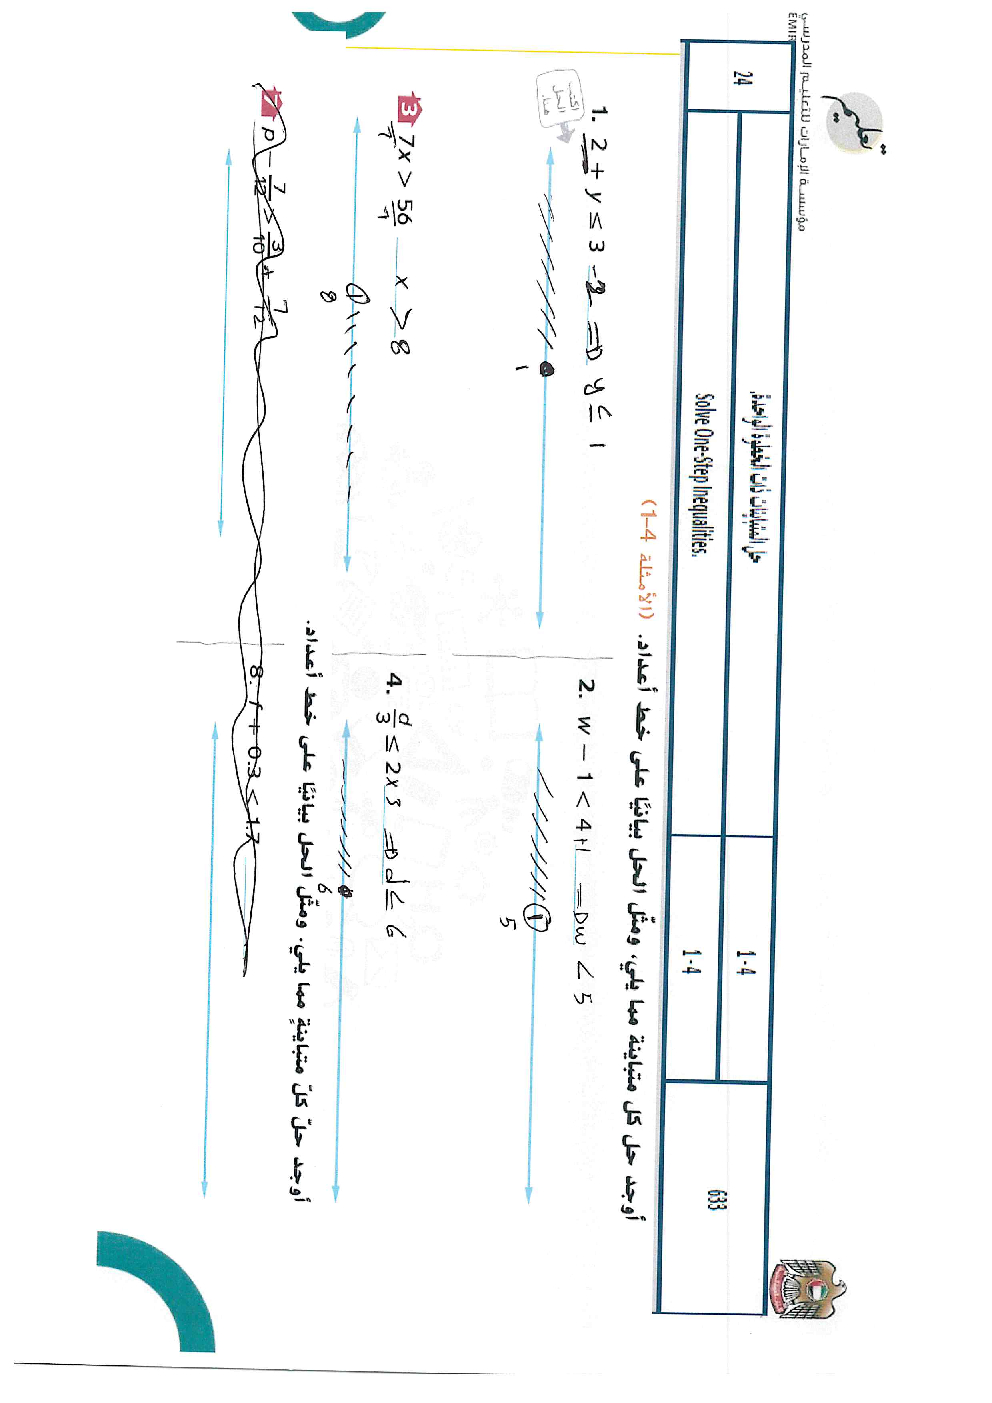 مؤسسة الإمارات للتعليم المدرسي
EMIR
24
حل المتباينات ذات الخطوة الواحدة.
1-4
633
Solve One-Step Inequalities.
1-4
أوجد حل كل متباينة مما يلي، ومثّل الحل بيانيًا على خط أعداد. (الأمثلة 4–1)
1. 2 + y ≤ 3 - 2 ⇒ y ≤ 1
2. w − 1 < 4+1 ⇒ w < 5
اكتب الحل هنا
1
5
3 7x/7 > 56/7 x > 8
4. d/3 ≤ 2×3 ⇒ d ≤ 6
8
6
أوجد حلّ كلّ متباينةٍ مما يلي. ومثّل الحل بيانيًا على خط أعداد.
7 p − 7/12 > 3/10 + 7/12
8. f + 0.3 < 1.7